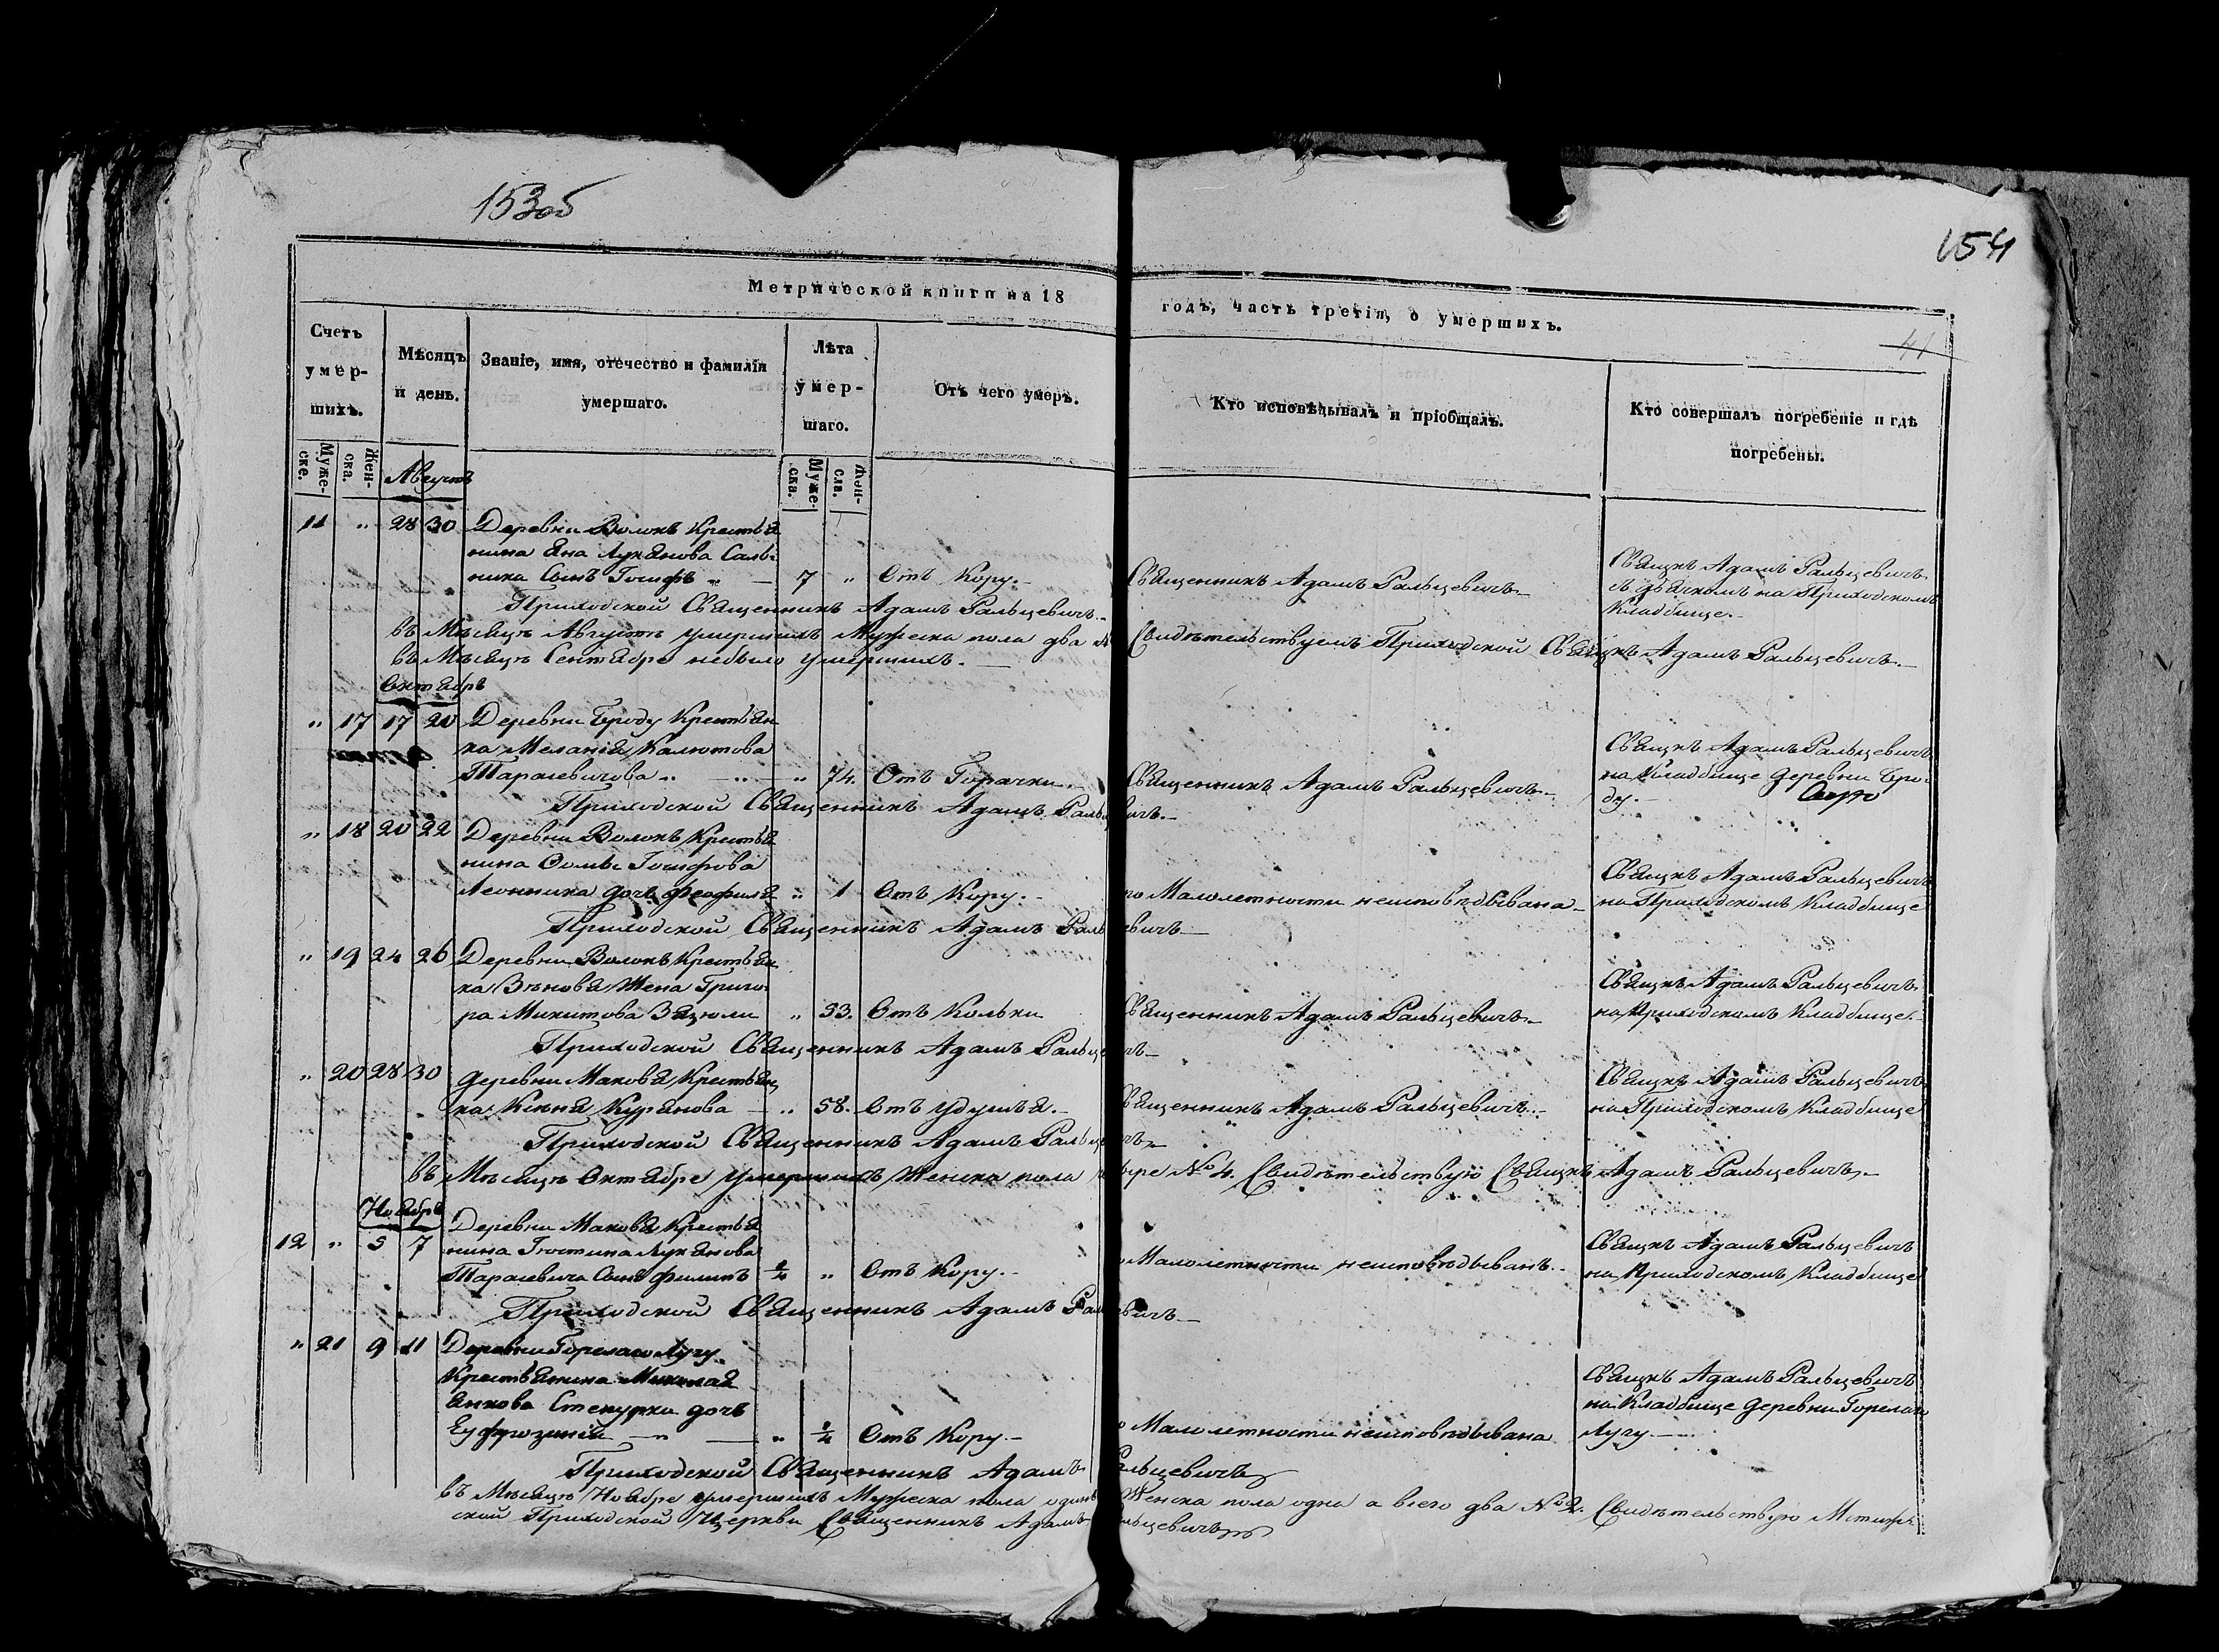 153об
154
41
Метрической книги на 18
годъ, часть третія, о умершихъ.
Счетъ умер-шихъ.
Мѣсяцъ и день.
Званіе, имя, отечество и фамилія умершаго.
Лѣта умер-шаго.
Отъ чего умеръ.
Кто исповѣдывалъ и пріобщалъ.
Кто совершалъ погребеніе и гдѣ погребены.
Муже-ске.
Жен-ска.
Муже-ска.
Жен-
Августъ
11 „ 28 30 Деревни Волокъ Крестья
нина Яна Лукянова
сынъ Іосифъ „ — 7 „ Отъ Кору.-
Священникъ Адамъ Ральцевичъ.-
Свящкъ Адамъ Ральцевичъ
съ дьячкомъ на Приходскомъ
Кладбище.-
Приходской Священникъ Адамъ Ральцевичъ.-
въ Мѣсяцъ Августъ умершихъ Мужеска пола два
Свидѣтельствуемъ Приходской Свящкъ Адамъ Ральцевичъ.-
въ Мѣсяцъ Сентябре небыло умершихъ.-
Октябрь
„ 17 17 20 Деревни Броду Крестьян
ка Меланія Калютова
Тарасевичова „ — „ — „ 74. Отъ Горачки.
Священникъ Адамъ Ральцевичъ.-
Свящкъ Адамъ Ральцевичъ
на Кладбище деревни Бро-
ду.-
Приходской Священникъ Адамъ Раль вичъ.-
„ 18 20 22 Деревни Волокъ Крестья
нина Ѳомы Іосифова
Леонника дочь Феофиля „ 1 Отъ Кору.-
по Малолетности неисповѣдывана-
Свящкъ Адамъ Ральцевичъ
на Приходскомъ Кладбище
Приходской Священникъ Адамъ Раль евичъ-
„ 19 24 26 Деревни Волокъ Крестьян
ка Зѣновя Жена Григо-
ра Микитова Зязюли „ 33. Отъ Кольки
Священникъ Адамъ Ральцевичъ-
Свящкъ Адамъ Ральцевичъ
на Приходскомъ Кладбище.-
Приходской Священникъ Адамъ Ральц чъ-
„ 20 28 30 деревни Маковя Крестьян
ка Ксеня Курянова — „ 58. Отъ удушья.-
Священникъ Адамъ Ральцевичъ.-
Свящкъ Адамъ Ральцевичъ
на Приходскомъ Кладбище
Приходской Священникъ Адамъ Ральц чъ.-
въ Мѣсяцъ Октябре умершихъ Женска пола
ыре № 4. Свидѣтельствую Свящкъ Адамъ Ральцевичъ.-
Ноябрь
12 „ 5 7 Деревни Маковя Крестья
нина Іюстина Лукянова
Тарасевича Сынъ Филипъ 2/4 „ Отъ Кору.-
о Малолетности неисповѣдыванъ.-
Свящкъ Адамъ Ральцевичъ
на Приходскомъ Кладбище
Приходской Священникъ Адамъ Рал евичъ-
„ 21 9 11 Деревни Горелаго Лугу
Крестьянина Миколая
Янкова Стекурки дочь
Еуфрозинія — „ — „ 2/4 Отъ Кору.-
о Малолетности неисповѣдывана
Свящкъ Адамъ Ральцевичъ
на Кладбище деревни Горелаго
Лугу.-
Приходской Священникъ Адамъ альцевичъ
въ Мѣсяцъ Ноябре умершихъ Мужеска пола одинъ Женска пола одна а всего два № 2. Свидѣтельствую
ской Приходской Церкви Священникъ Адамъ льцевичъ